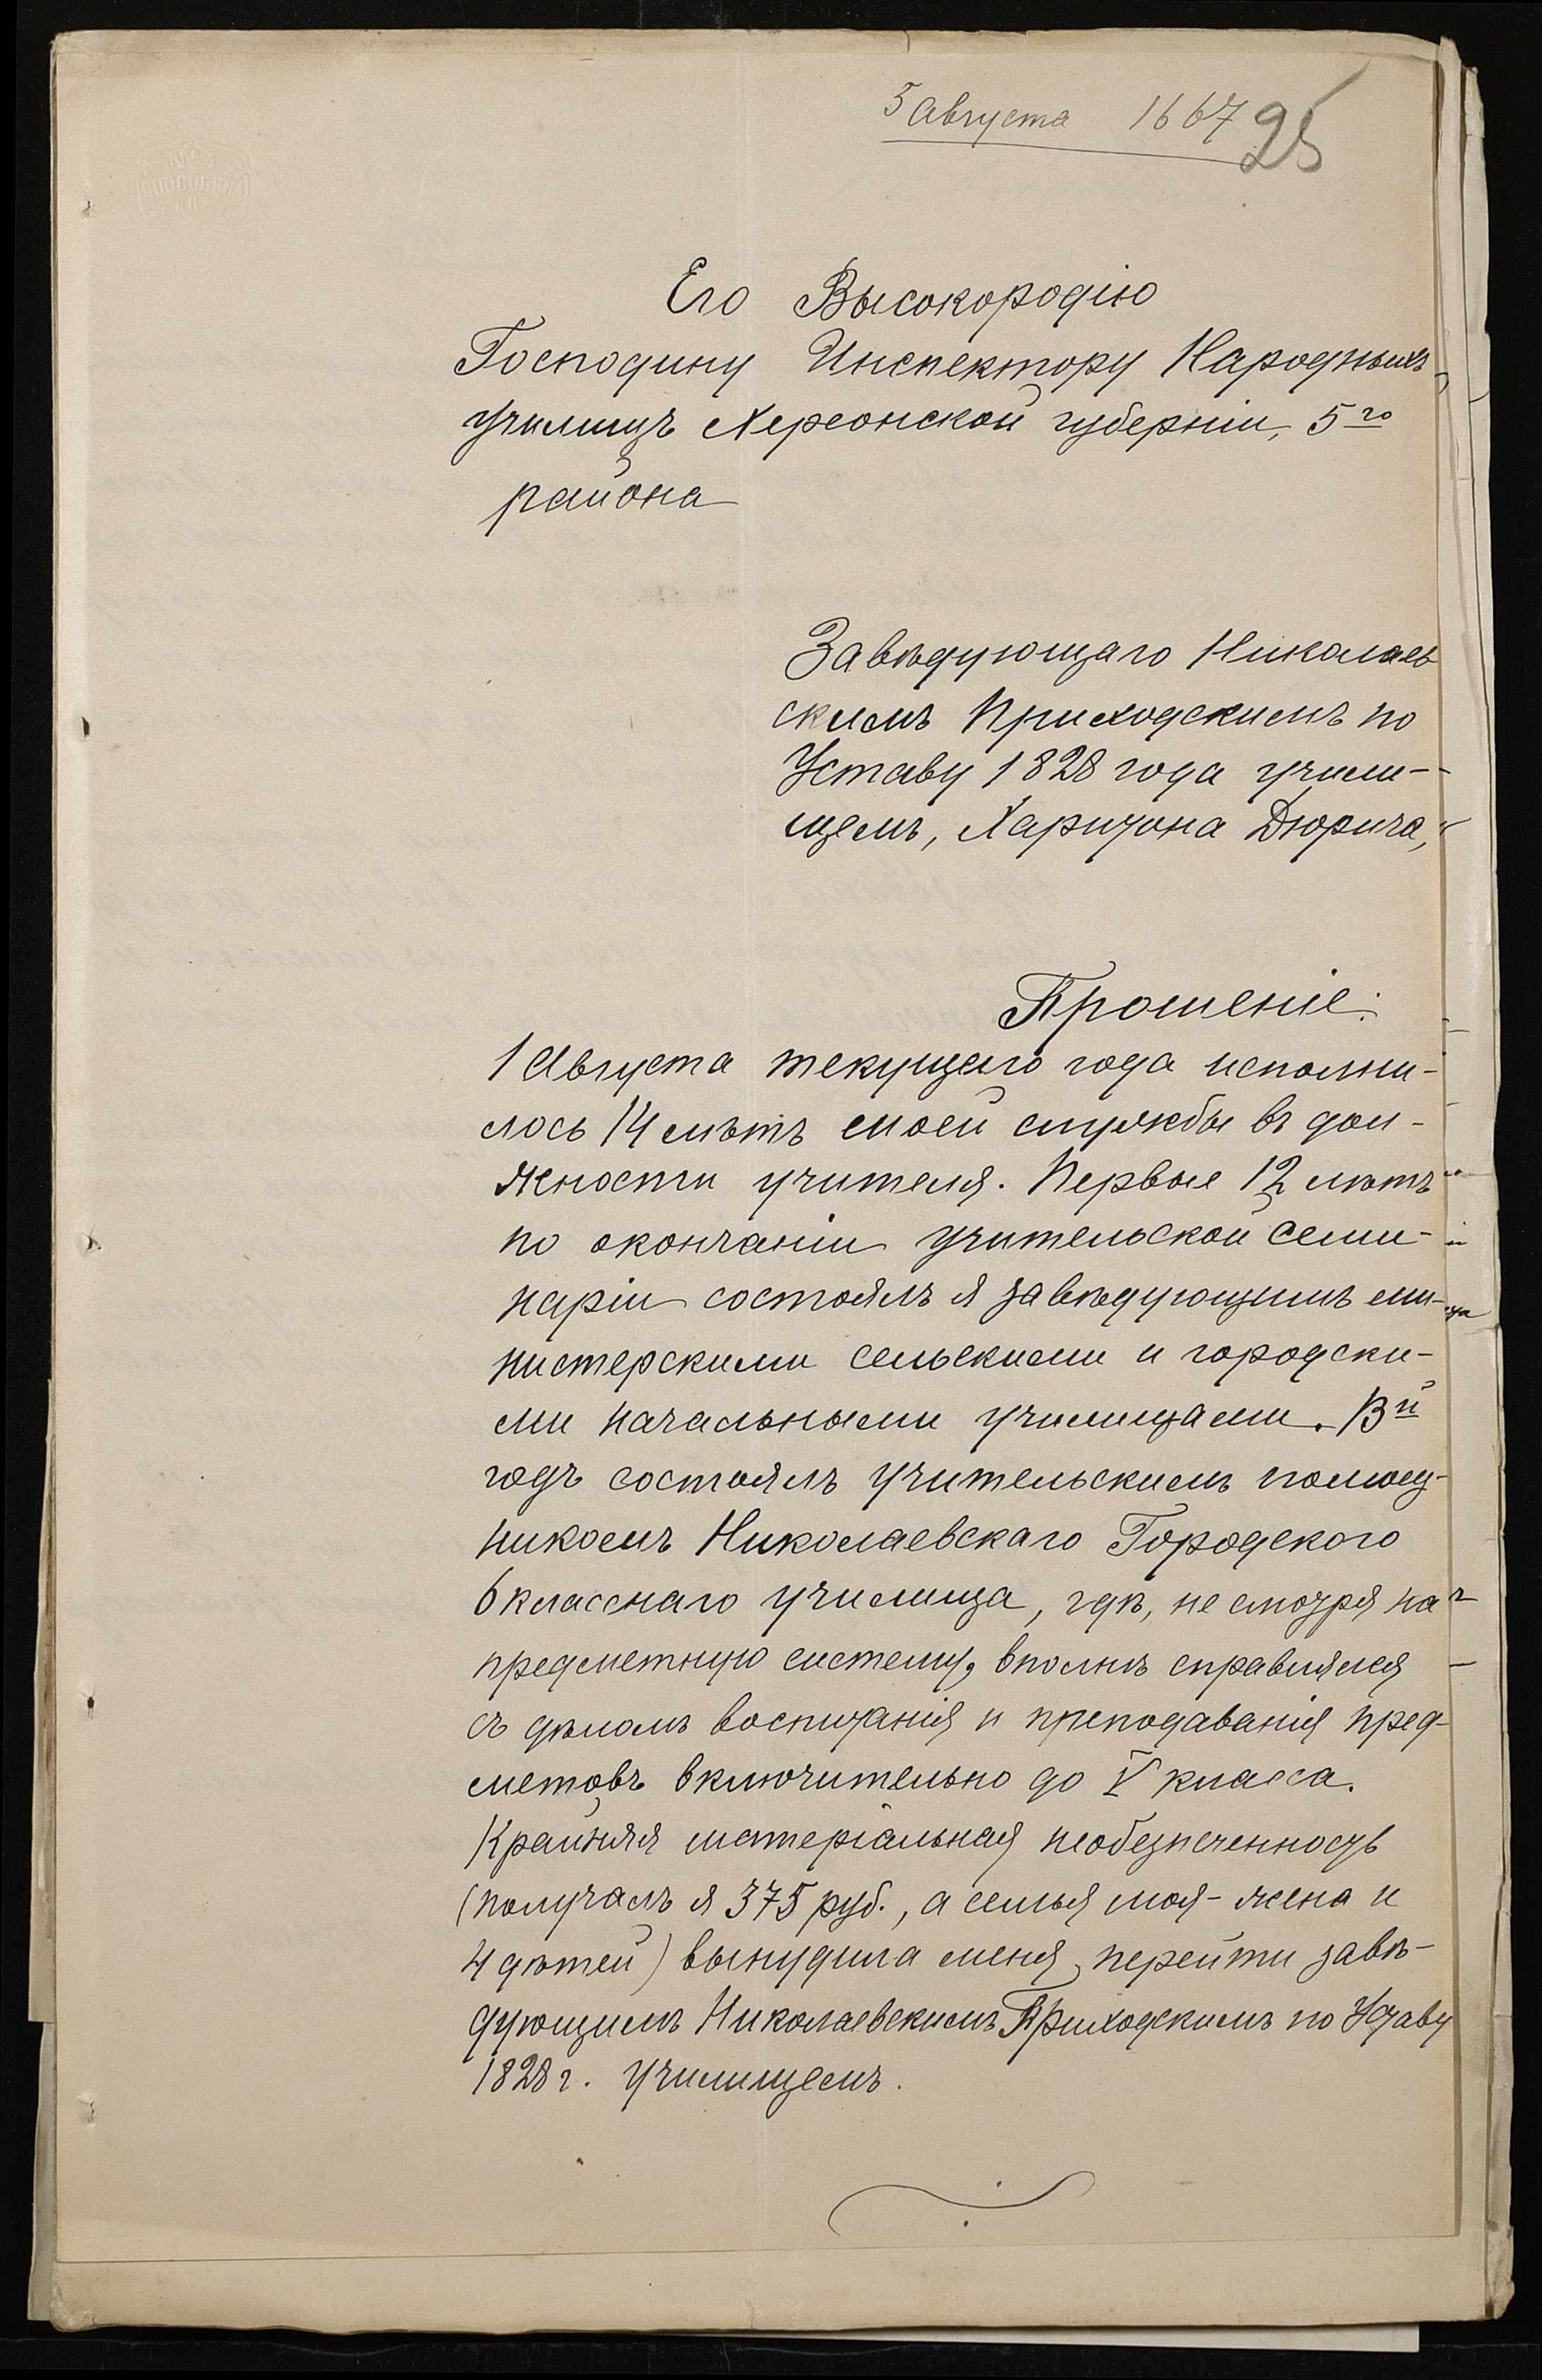 5 Августа 1667
25
Его Высокородію
Господину Инспектору Народныхъ
училищъ Херсонской губерніи, 5го
района
Завѣдующаго Николаев
скимъ Приходскимъ по
Уставу 1828 года учили-
щемъ, Харитона Дюрича,
Прошеніе.
1 Августа текущаго года исполни-
лось 14 лѣтъ моей службы въ дол-
жности учителя. Первые 12 лѣтъ
по окончаніи учительской семи-
наріи состоялъ я завѣдующимъ ми-
нистерскими сельскими и городски-
ми начальными училищами. 13й
годъ состоялъ учительскимъ помощ-
никомъ Николаевскаго Городского
6 класснаго училища, гдѣ, не смотря на
предметную систему, вполнѣ справлялся
съ дѣломъ воспитанія и преподаванія пред-
метовъ включительно до V класса.
Крайняя матеріальная необезпеченность
(получалъ я 375 руб., а семья моя - жена и
4 дѣтей) вынудила меня перейти завѣ-
дующимъ Николаевскимъ Приходскимъ по Уставу
1828 г. училищемъ.